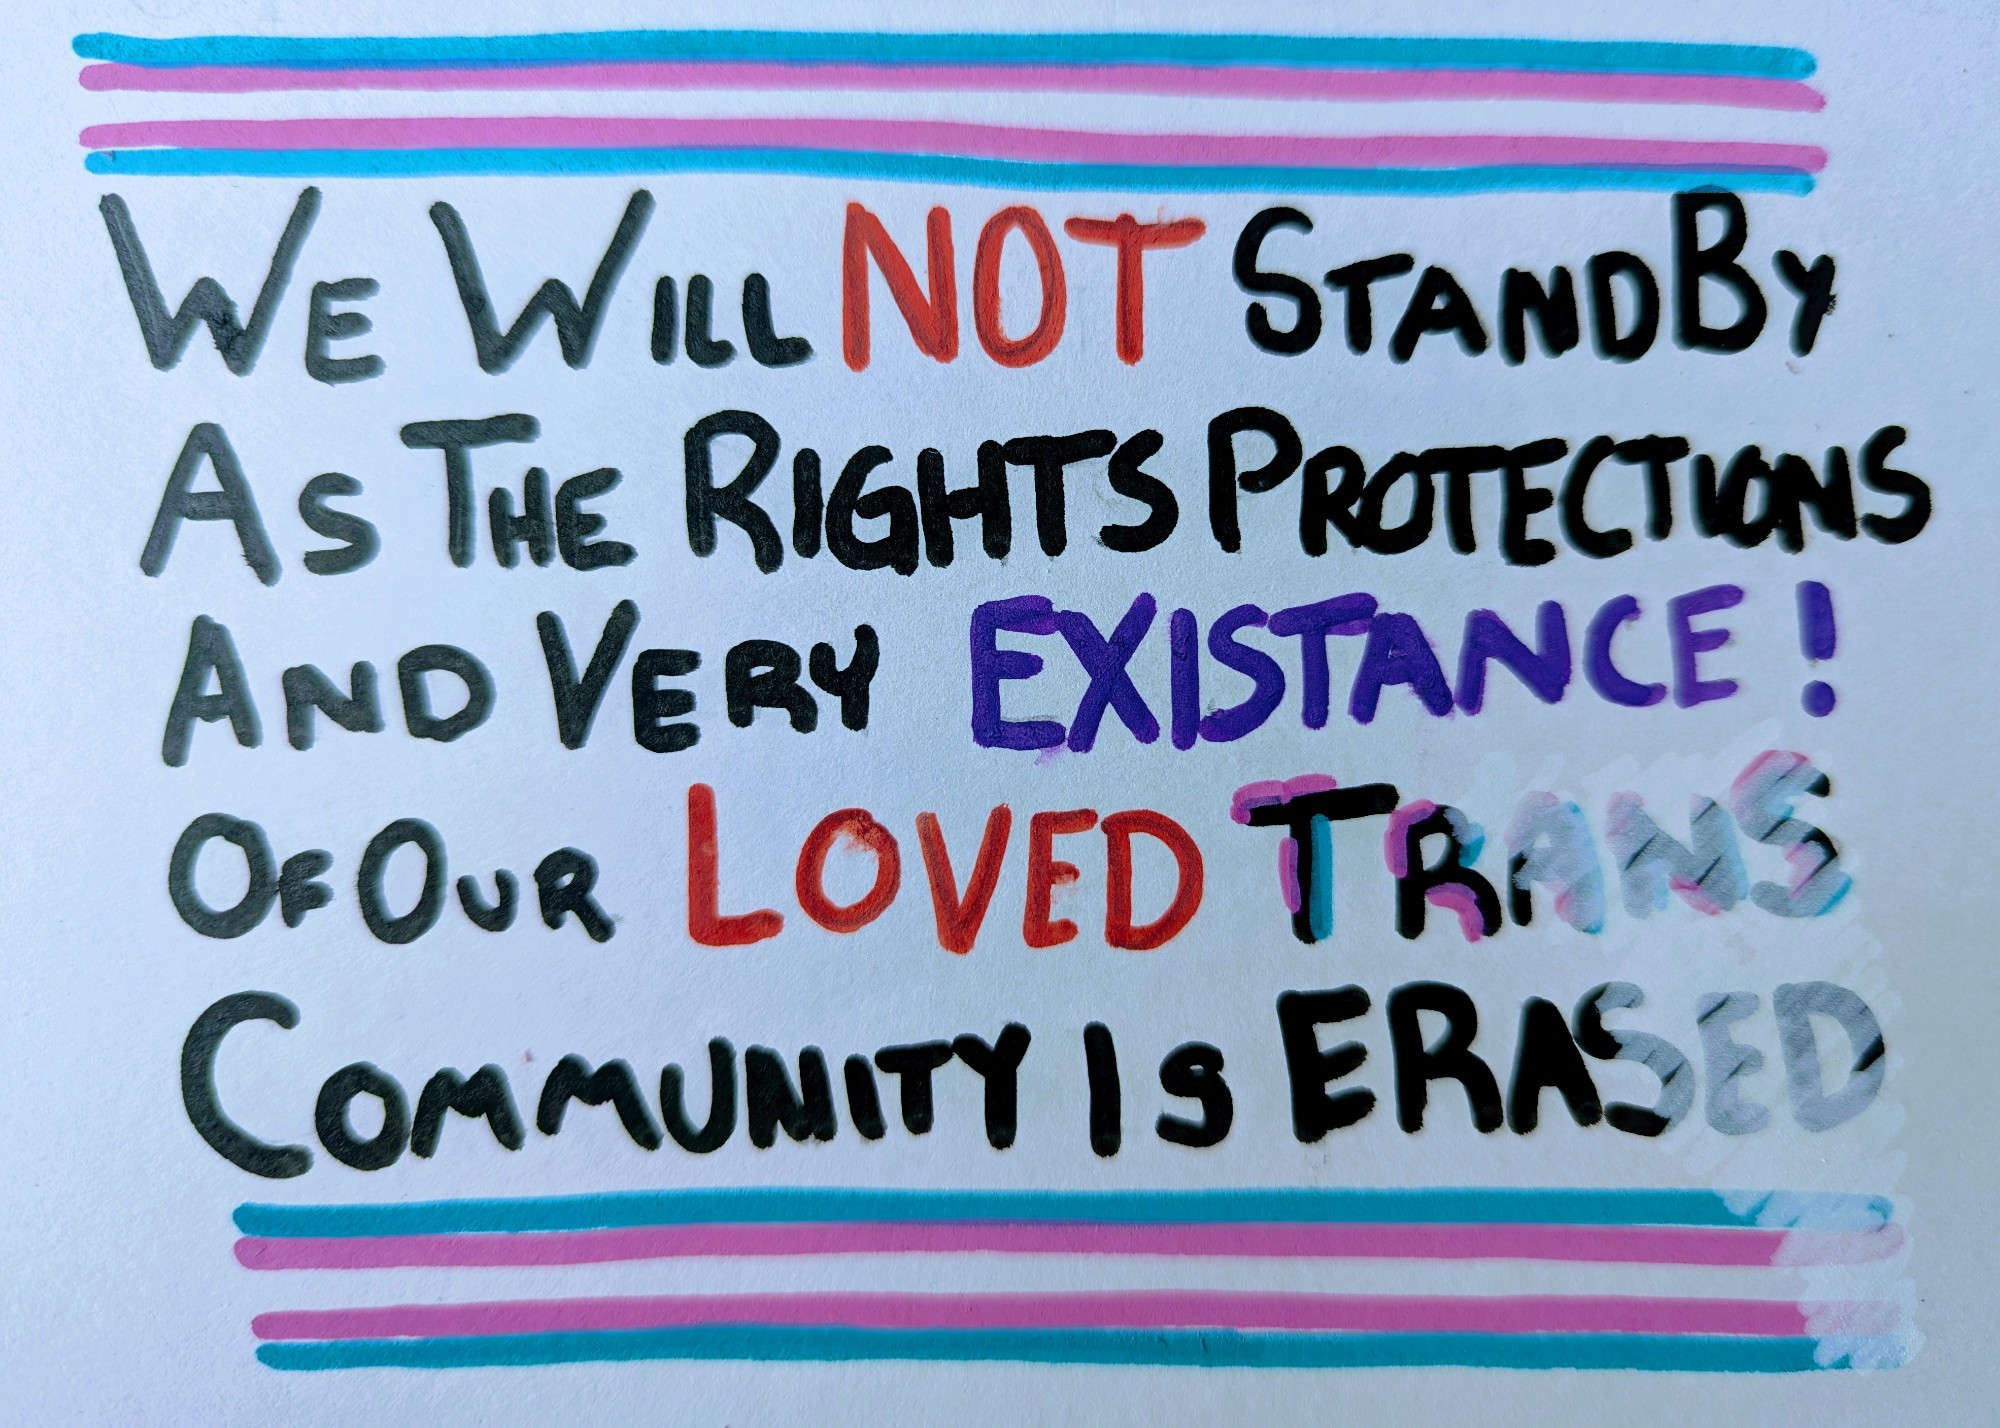 We Will NOT StandBy
As The Rights Protections
And Very EXISTANCE!
Of Our LOVED TRANS
Community Is ERASED